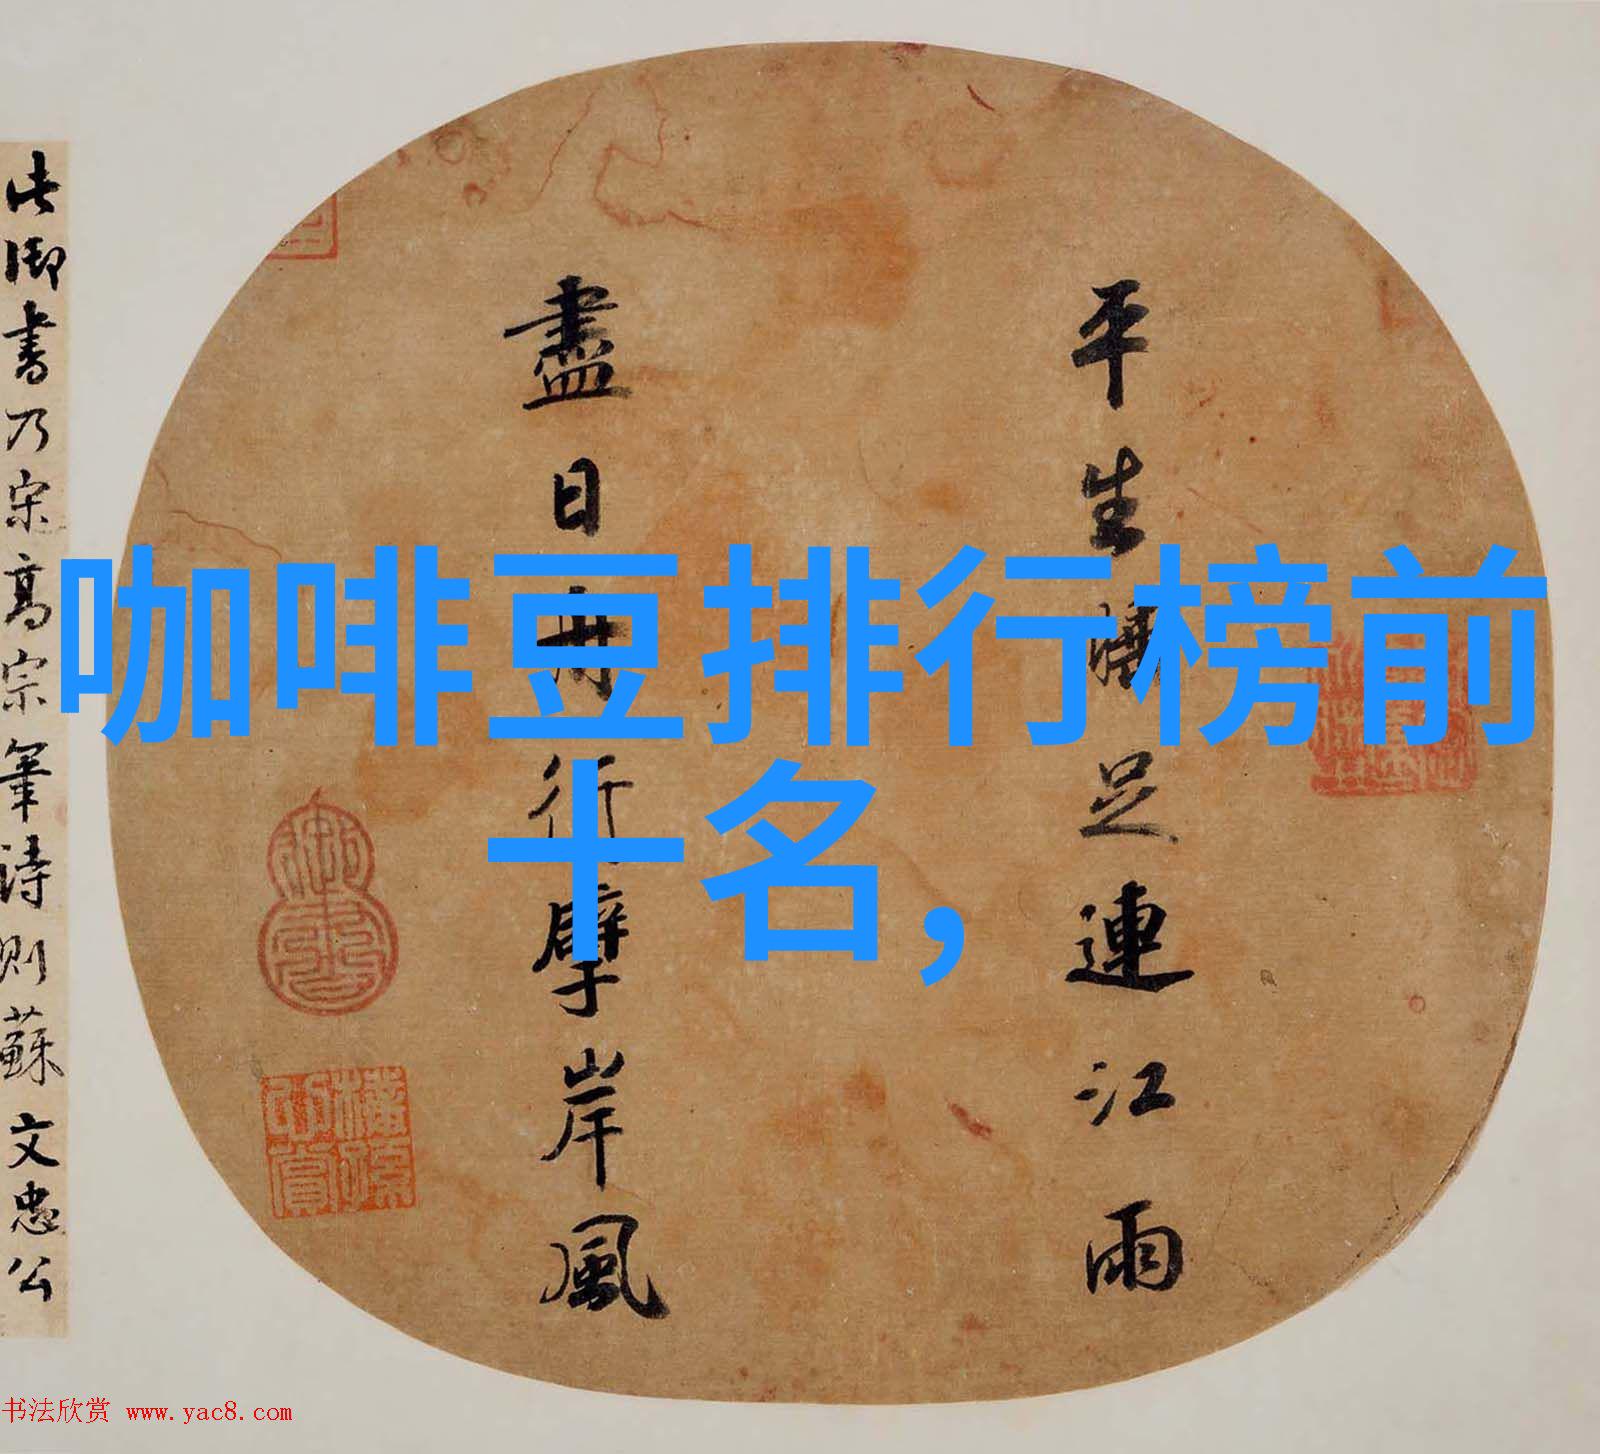 咖啡豆排行榜前
十名,
平生睡足連江雨
盡日舟行擘岸風
此御書乃宋高宗筆詩則蘇文忠公
书法欣赏 www.yac8.com